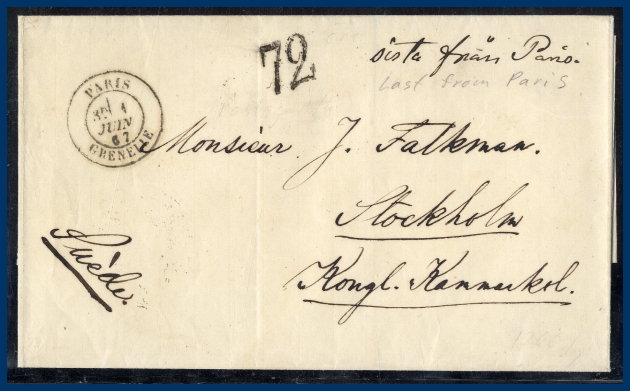 72
sista från Paris.
Last from Paris
PARIS
3E 1
JUIN
67
GRENELLE
Monsieur J. Falkman.
Stockholm
Kongl. Kammarkol.
Suède.